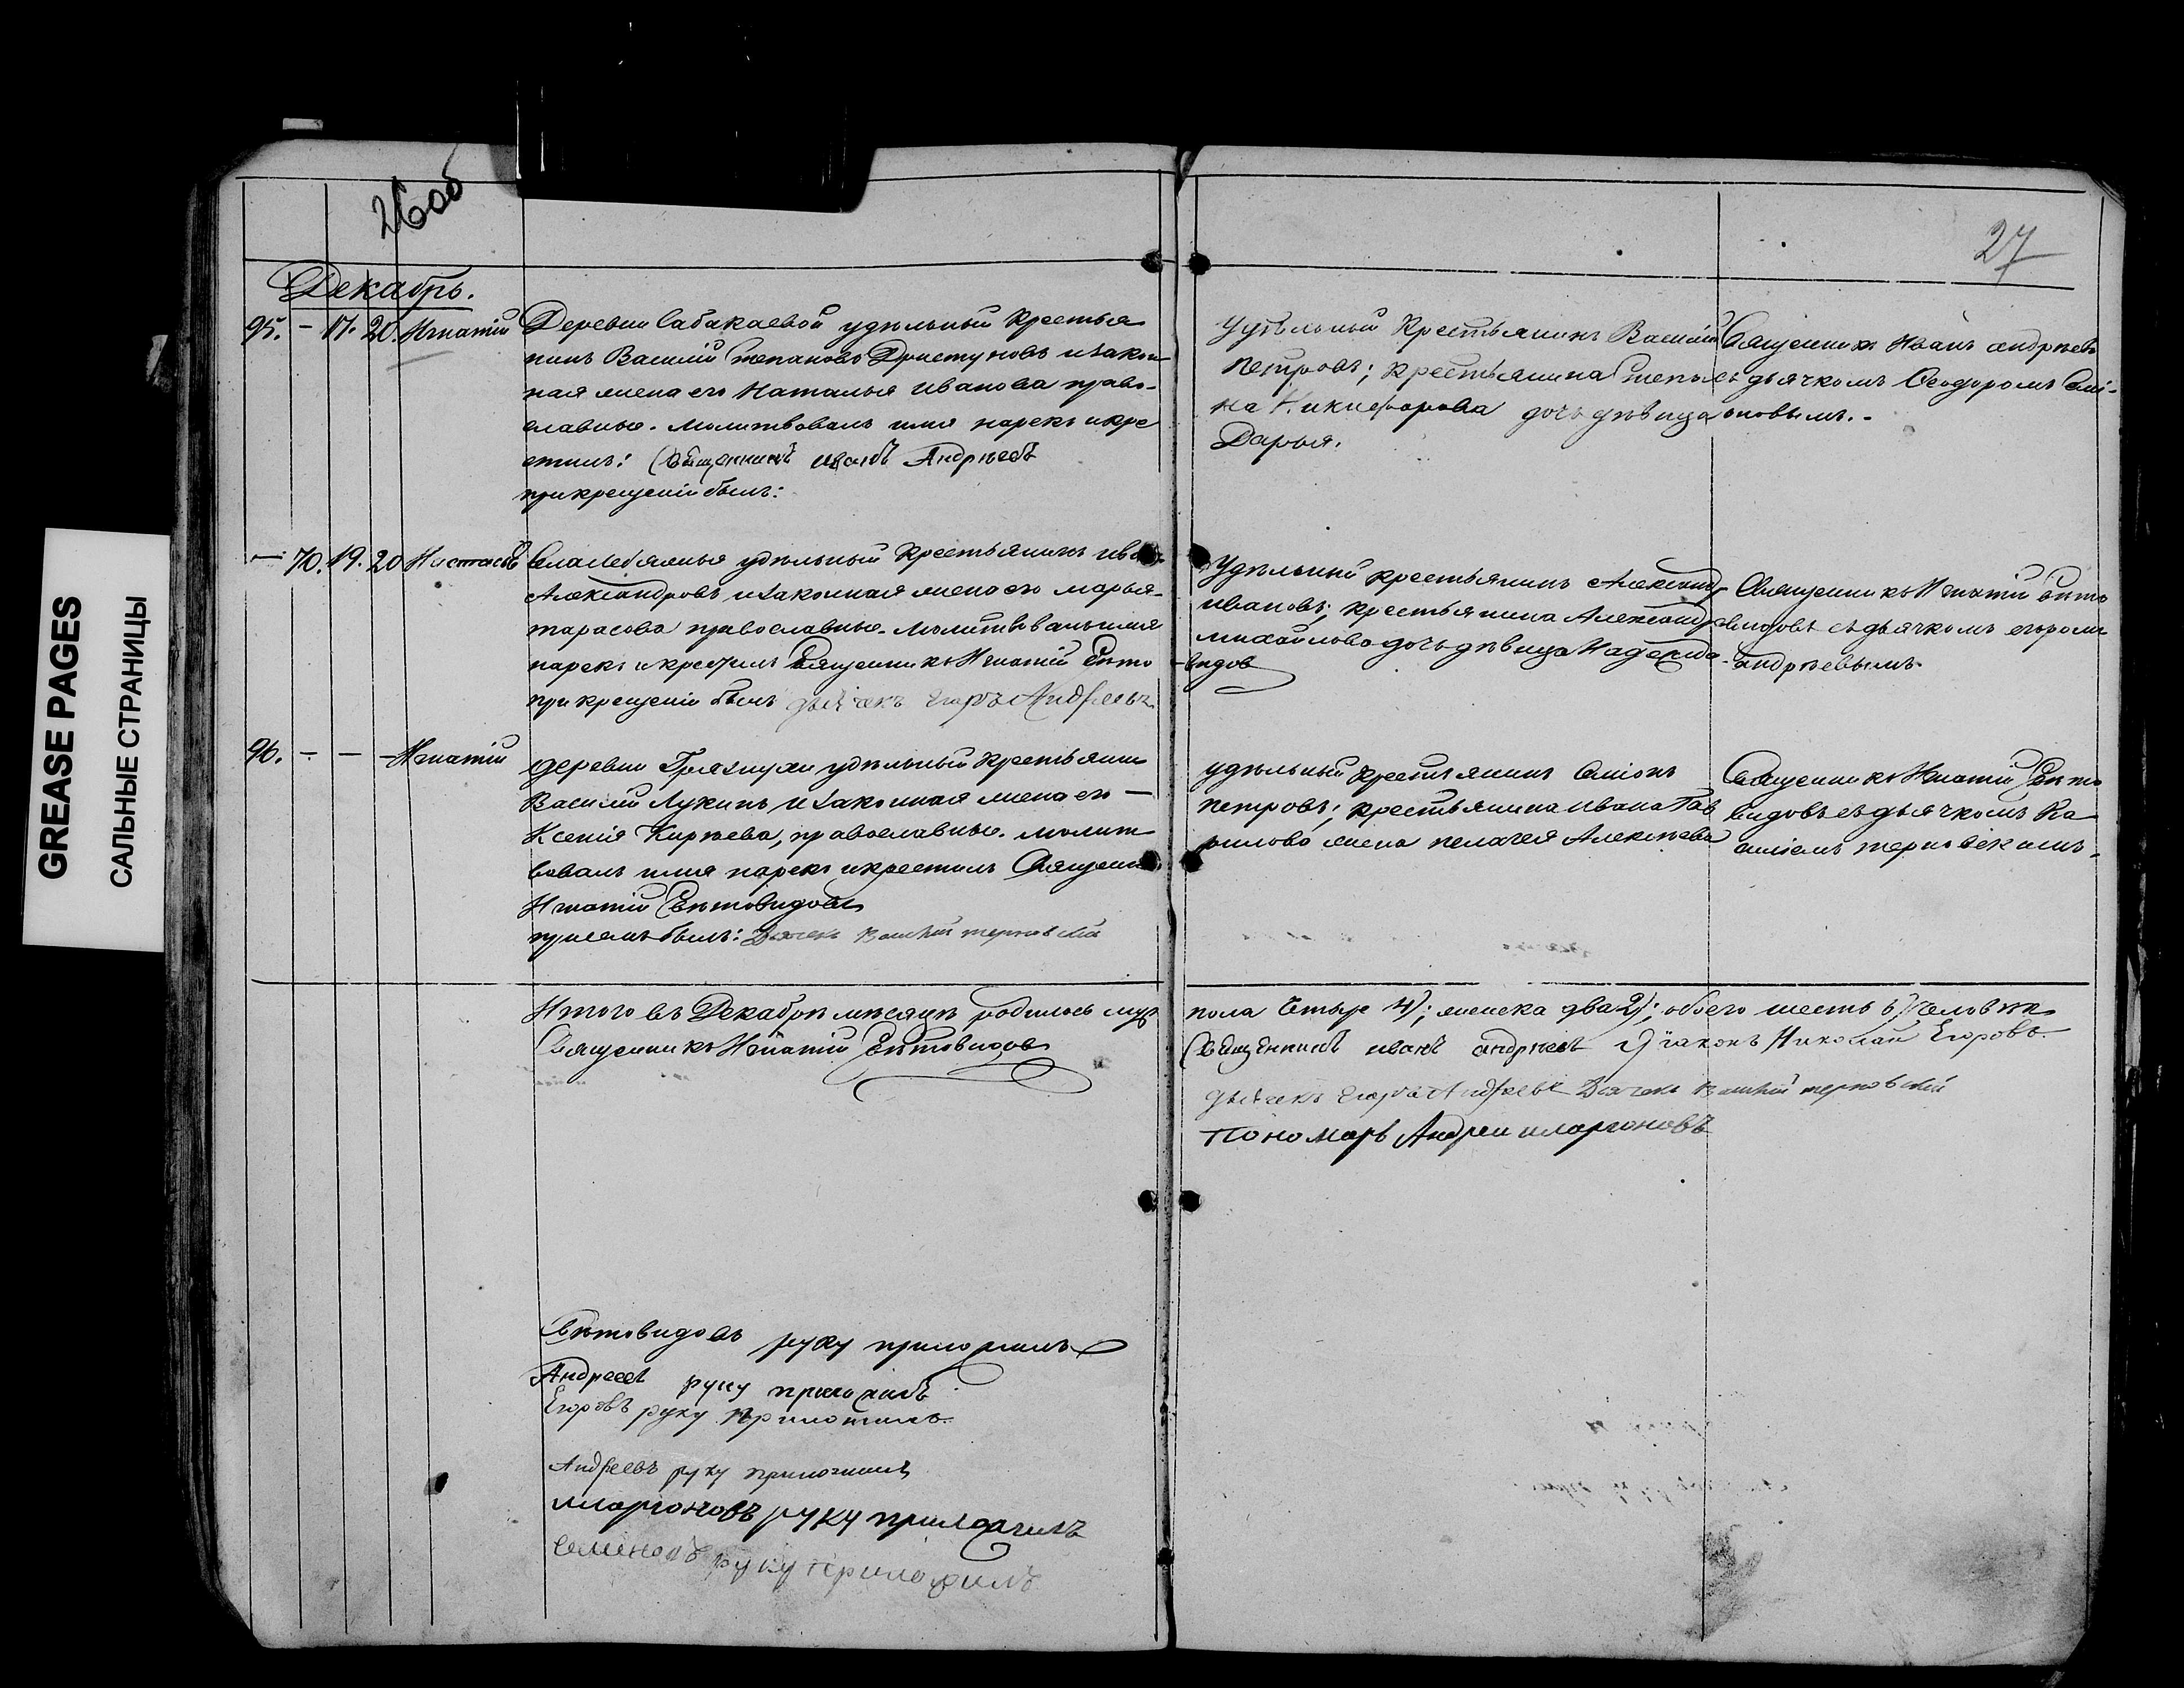 26об
27
GREASE PAGES
САЛЬНЫЕ СТРАНИЦЫ
Декабрь.
95. – 17. 20. Игнатій
Деревни Сабакаевой удѣльный крестья
нинъ Василій Степановъ Дристуновъ и закон
ная жена его Наталья Иванова право-
славные. Молитвовалъ имя нарекъ и кре
стилъ: Священникъ Иванъ Андрѣевъ
при крещеніи былъ:
Удѣльный крестьянинъ Василій
Петровъ; крестьянина Степа
на Никифорова дочь дѣвица
Дарья.
Священникъ Иванъ Андрѣевъ
съ дьячкомъ Ѳеодоромъ Семі-
оновымъ.-
– 70. 19. 20 Настасья
Села Лебяжья удѣльный крестьянинъ
Александровъ и законная жена его Марья
Тарасова православные. Молитвовалъ имя
нарекъ и крестилъ Священникъ Игнатій Свѣто
видов
при крещеніи былъ дьячекъ Егоръ Андреевъ
Удѣльный крестьянинъ Александръ
Ивановъ; крестьянина Александра
Михайлова дочь дѣвица Надежда
Священникъ Игнатій Свѣто
видовъ съ дьячкомъ Егоромъ
Андрѣевымъ
96. – – – Игнатій
Деревни Грязнухи удѣльный крестьянин
Василій Лукинъ и законная жена его –
Ксенія Кирѣева, православные. Молит
вовалъ имя нарекъ и крестилъ Священни
Игнатій Свѣтовидовъ
при семъ былъ: Дьячекъ терновскій
Удѣльный крестьянинъ Симіонъ
Петровъ; крестьянина Ивана Гав
рилова жена Пелагея Алексѣева
Священникъ Игнатій Свѣто
видовъ съ дьячкомъ Ка
терновскимъ.
Итого въ Декабрѣ мѣсяцѣ родилось муж
пола Четыре 4); женска два 2); обоего шесть 6) Человѣкъ
Священникъ Игнатій Свѣтовидовъ
Священникъ Иванъ Андрѣевъ Дїаконъ Николай Егоровъ.
дьячекъ Егоръ Андреевъ Дьячекъ терновскій
Пономарь Андреи иларионовъ
Свѣтовидовъ руку приложилъ
Андреевъ руку приложилъ
Егоровъ руку приложилъ.
Андреевъ руку приложилъ
иларионовъ руку приложилъ
Семеновъ руку приложилъ